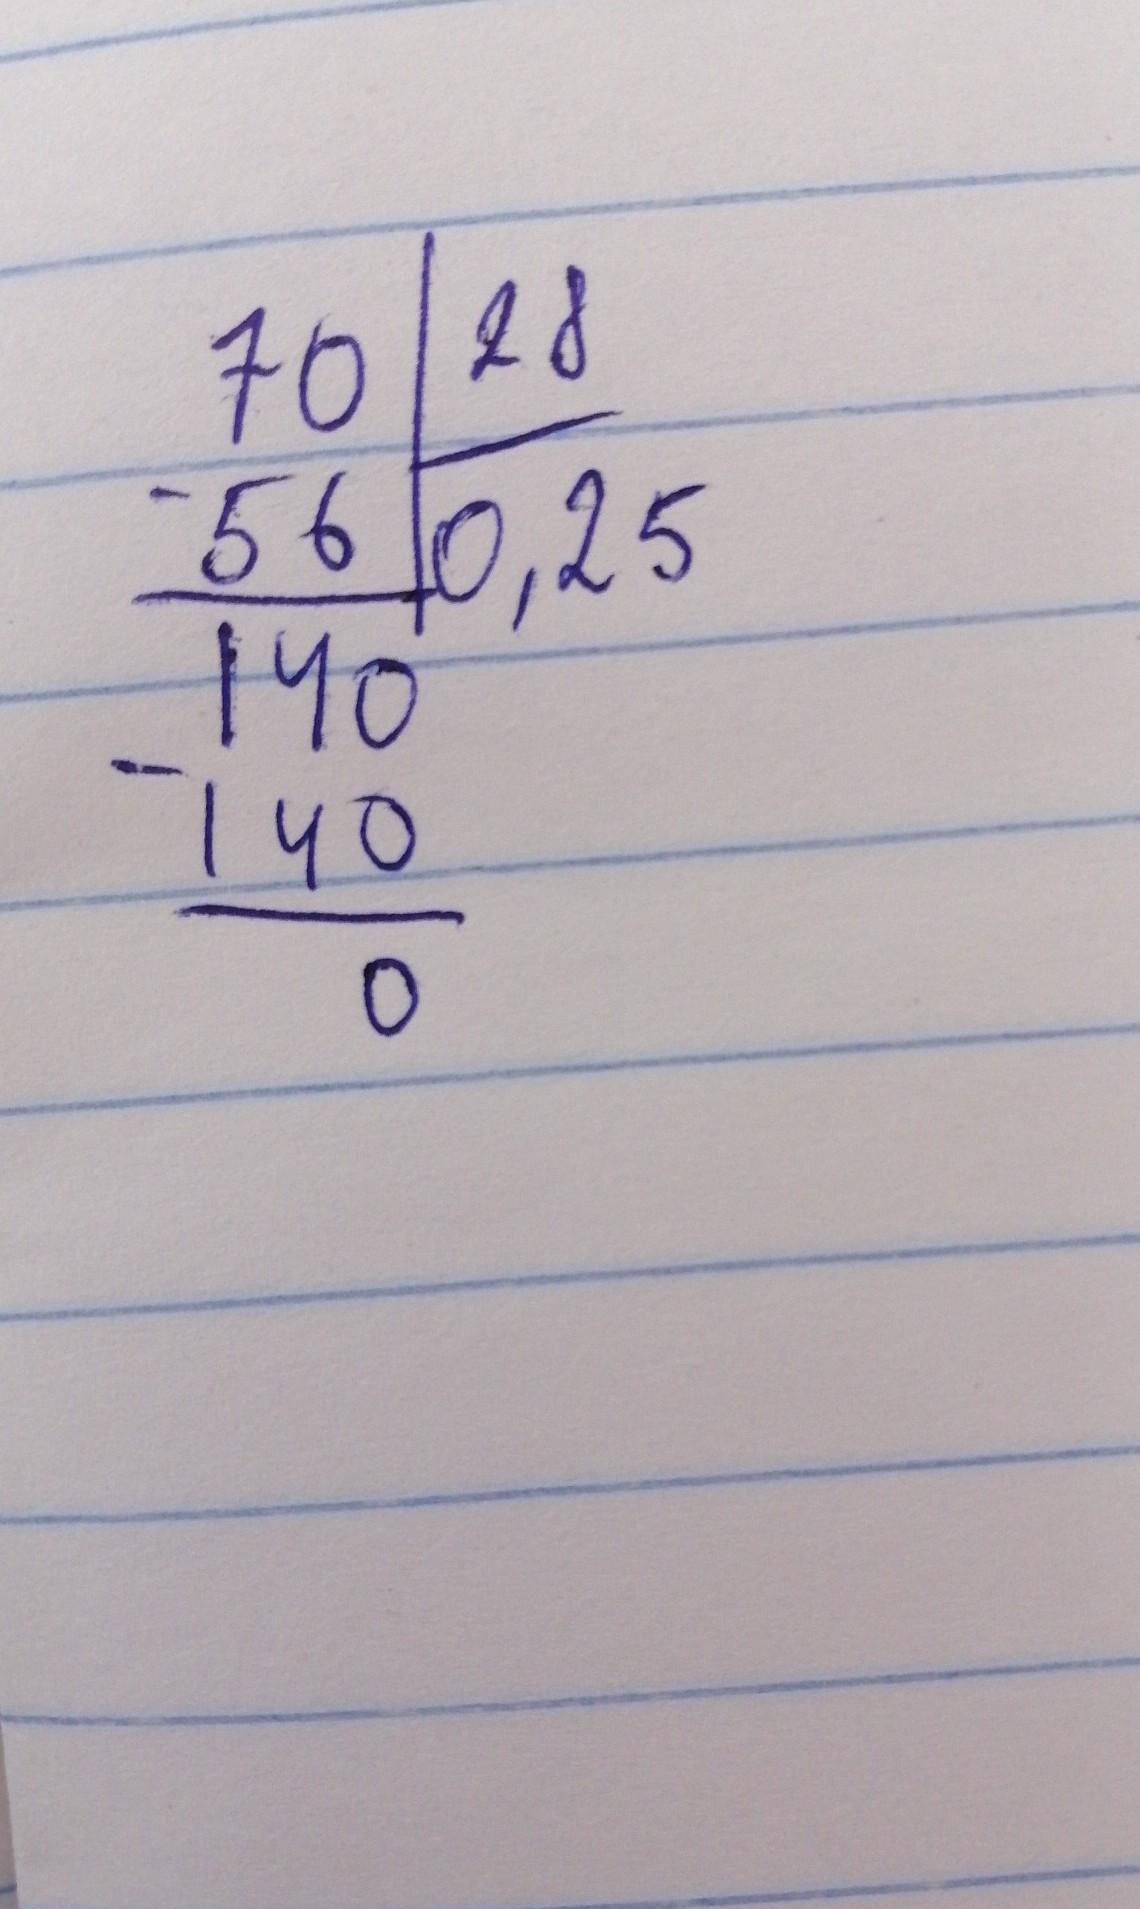 70 28
-56 0,25
140
-140
0